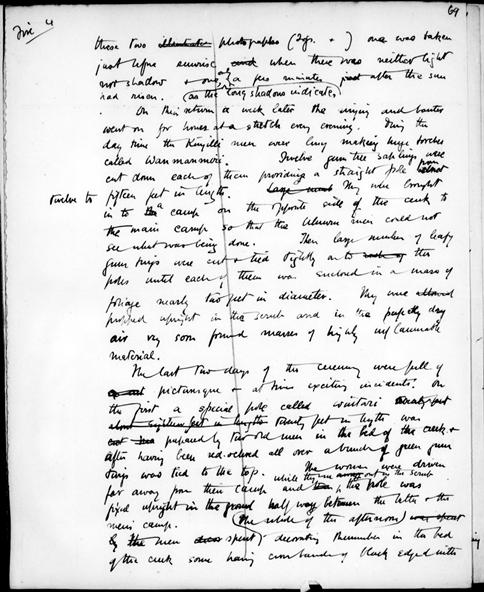 69
Fire 4
these two illustration photographs (2 figs. + ) one was taken
just before sunrise and when there was neither light
nor shadow + one only a few minutes just after the sun
had risen. (as the long shadows indicate)
On their return a week later the singing and banter
went on for hours at a stretch every evening. During the
day time the Kingilli men were busy making huge torches
called Wanmanmirri. Twelve gum tree saplings were
cut down each of them providing a straight pole from
twelve to fifteen feet in length. They were brought
in to a camp on the opposite side of the creek to
the main camp so that the Uluuru men could not
see what was being done. Then large numbers of leafy
gum twigs were cut + tied tightly on to each of the
poles until each of them was enclosed in a mass of
foliage nearly two feet in diameter. They were allowed
propped upright in the scrub and in the perfectly dry
air very soon formed masses of highly inflammable
material.
The last two days of the ceremony were full of
picturesque + at times exciting incidents. On
the first a special pole called
about eighteen feet in length twenty feet in length was
prepared by two old men in the bed of the creek +
after having been red-ochred all over a bunch of green gum
twigs was tied to the top. The women were driven
far away from their camp and while they were out in the scrub the pole was
fixed upright in the ground half way between the latter + the
men's camp. (The whole of the afternoon) was spent
by the men spent decorating themselves in the bed
of the creek some having arm bands of black edged with